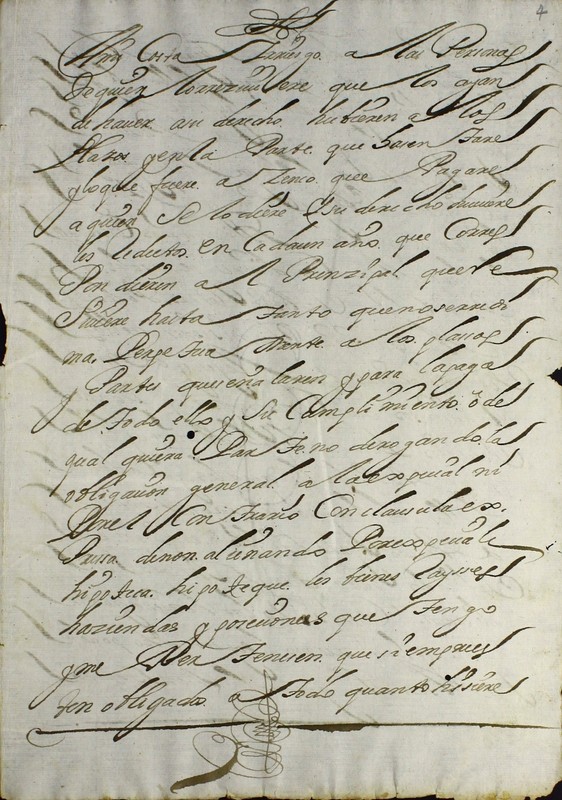 4
my Costa y Riesgo. a las Personas
de quien lo rreziuiere que los ayan
de hauer a su derecho hubieren a los
Plazos y en la Parte. que hasen fare
y lo que fuere. a Zenso. que Pagare
a quien Se lo diere y su derecho huuiere
los Reditos. en Cada un año. que Corres
Pondieren a el Prinzipal que rre
Siuiere hasta tanto que no se rredi
ma. Perpetua Mente. a los plasos
y Partes que señalaren y para la paga
de todo ello y Su Cumplimiento. o de
qual quiera Parte. no derogando la
obligasion general a la espesial ni
Por el Contrario Con clausula ex.
Presa de non alienando Por espesial
hipoteca. hipoteque. los bienes Rayses
haziendas y posesiones que Tengo
y me Pertenesen que siempre es
ten obligado. a todo quanto hisiere